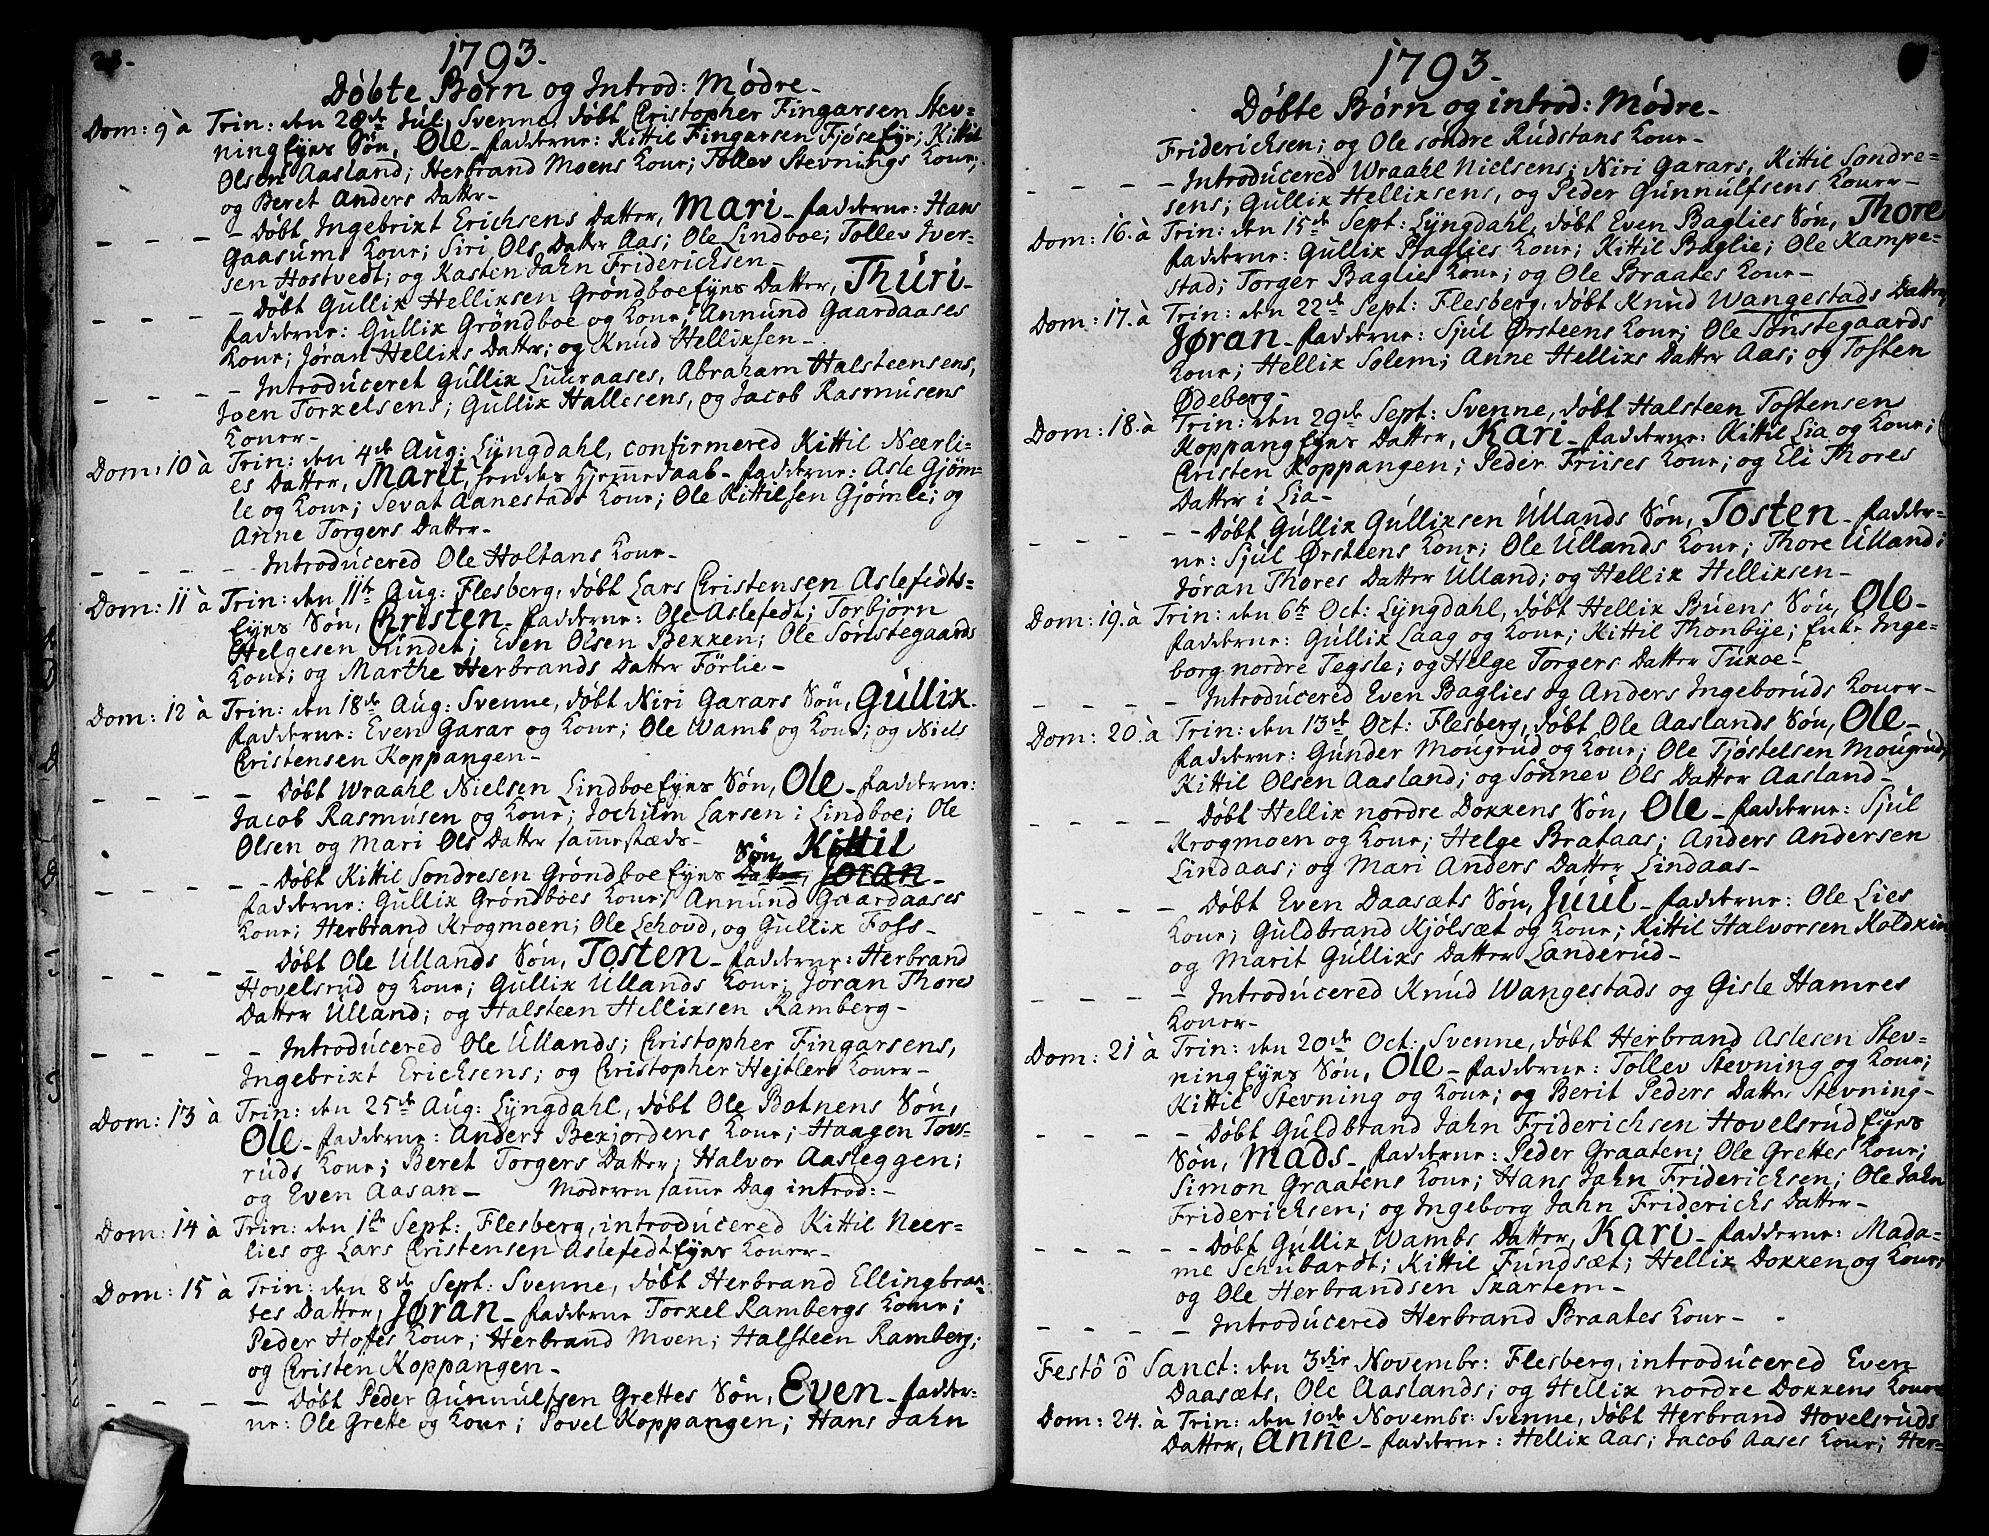 1793.
Døbte Børn og Introd: Mødre_
Dom: 9 à Trin: den 28de Jul: Svenne, døbt Christopher Fingarsen Stev-
ning Eyes Søn, Ole_ fadderne: Kittil Fingarsen Fjøse Eye; Kittil
Olsen Aasland; Herbrand Moens Kone; Tollev Stevnings Kone;
og Beret Anders Datter_
_ _ _ _ Døbt Ingebrixt Erichsens Datter, Mari_ fadderne: Hans
Gaasums Kone; Siri Ols Datter Aas; Ole Lindboe; Tollev Iver-
sen Hostvedt; og Kasten Jahn Fridericksen_
_ _ _ _ Døbt Gullix Hellixsen Grøndboe Eyes Datter, Thuri_
fadderne: Gullix Grøndboe og Kone; Annund Gaardaases
Kone; Jøran Hellixs Datter; og Knud Hellixsen_
_ _ _ _ Introduceret Gullix Luuraases, Abraham Halsteensens,
Joen Torxelsens; Gullix Hallesens, og Jacob Rasmusens
Koner_
Dom: 10 à Trin: den 4de Aug: Lyngdahl, confirmered Kittil Neerli-
es Datter, Marit, hendes Hjemmedaab_ fadderne: Asle Gjøm-
le og Kone; Sevat Aanestads Kone; Ole Kittilsen Gjømle; og
Anne Torgers Datter_
_ _ _ _ Introducered Ole Holtans Kone_
Dom: 11 à Trin: den 11te Aug: Flesberg, døbt Lars Christensen Aslefedts-
Eyes Søn, Christen_ fadderne: Ole Aslefedt; Torbjørn
Helgesen Rindet; Even Olsen Bexxen; Ole Sønstegaards
Kone; og Marthe Herbrands Datter Førlie_
Dom: 12 à Trin: den 18de Aug: Svenne, døbt Niri Garars Søn, Gullix_
fadderne: Even Garar og Kone; Ole Wamb og Kone; og Niels
Christensen Koppangen_
_ _ _ _ Døbt Wraahl Nielsen Lindboe Eyes Søn, Ole_ fadderne:
Jacob Rasmusen og Kone; Jochum Larsen i Lindboe; Ole
Olsen og Mari Ols Datter sammestæds_
Søn, Kittil
_ _ _ _ Døbt Kittil Sondresen Grøndboe Eyes Datter, Jøran_
fadderne: Gullix Grøndboes Kone; Annund Gaardaases
Kone; Herbrand Krogmoen; Ole Lehovd, og Gullix Foss_
_ _ _ _ Døbt Ole Ullands Søn, Tosten_ fadderne: Herbrand
Hovelsrud og Kone; Gullix Ullands Kone; Jøran Thores
Datter Ulland; og Halsteen Hellixsen Ramberg_
_ _ _ _ Introducered Ole Ullands; Christopher Fingarsens,
Ingebrixt Ericksens; og Christopher Hejtlers Koner_
Dom: 13 à Trin: den 25de Aug: Lyngdahl, døbt Ole Botnens Søn,
Ole_ fadderne: Anders Bexjordens Kone; Haagen Tovs-
ruds Kone; Beret Torgers Datter; Halvor Aasleggen;
og Even Aasan_ Moderen samme Dag introd:_
Dom: 14 à Trin: den 1te Sept: Flesberg, introducered Kittil Neer-
lies og Lars Christensen Aslefedt Eyes Koner_
Dom: 15 à Trin: den 8de Sept: Svenne, døbt Herbrand Ellingbraa-
tes Datter, Jøran_ fadderne Torxel Rambergs Kone;
Peder Hoffs Kone; Herbrand Moen; Halsteen Ramberg;
og Christen Koppangen_
_ _ _ _ Døbt Peder Gunnulfsen Grettes Søn, Even_ fadder-
ne: Ole Grette og Kone; Povel Koppangen; Hans Jahn
1793.
Døbte Børn og introd: Mødre_
Fridericksen; og Ole søndre Rudstans Kone_
_ _ _ _ Introducered Wraahl Nielsens; Niri Garars, Kittil Sondre-
sens; Gullix Hellixsens, og Peder Gunnulfsens Koner_
Dom: 16. à Trin: den 15de Sept: Lyngdahl, døbt Even Baglies Søn, Thore
fadderne: Gullix Baglies Kone; Kittil Baglie; Ole Kampe-
stad; Torger Baglies Kone; og Ole Braates Kone_
Dom: 17. à Trin: den 22de Sept: Flesberg, døbt Knud Wangestads Datter,
Jøran_ fadderne: Sjul Ørsteens Kone; Ole Sønstegaards
Kone; Hellix Solem; Anne Hellixs Datter Aas; og Tosten
Ødeberg_
Dom: 18. à Trin: den 29de Sept: Svenne, døbt Halsteen Tostensens
Koppang Eyes Datter, Kari_ fadderne: Kittil Lia og Kone;
Christen Koppangen; Peder Friises Kone; og Eli Thores
Datter i Lia_
_ _ _ _ Døbt Gullix Gullixsen Ullands Søn, Tosten_ fadder-
ne: Sjul Ørsteens Kone; Ole Ullands Kone; Thore Ulland;
Jøran Thores Datter Ulland; og Hellix Hellixsen_
Dom: 19. à Trin: den 6te Oct: Lyngdahl, døbt Hellix Buens Søn, Ole_
fadderne: Gullix Laag og Kone; Kittil Thonbye; Enke Inge-
borg nordre Tegsle; og Helge Torgers Datter Tuxoe_
_ _ _ _ Introducered Even Baglies og Anders Ingeboruds Koner_
Dom: 20. à Trin: den 13de Oct: Flesberg, døbt Ole Aaslands Søn, Ole_
fadderne: Gunder Mougrud og Kone; Ole Tjøstelsen Mougrud;
Kittil Olsen Aasland; og Sønnev Ols Datter Aasland_
_ _ _ _ Døbt Hellix nordre Doxxens Søn, Ole_ fadderne: Sjul
Krogmoen og Kone; Helge Brataas; Anders Andersen
Lindaas; og Mari Anders Datter Lindaas_
_ _ _ _ Døbt Even Daasæts Søn, Juul_ fadderne: Ole Lies
Kone; Guldbrand Kjølsæt og Kone; Kittil Halvorsen Koldxin
og Marit Gullixs Datter Landerud_
_ _ _ _ Introducered Knud Wangestads og Gisle Hamres
Koner_
Dom: 21 à Trin: den 20de Oct: Svenne, døbt Herbrand Aslesen Stev-
ning Eyes Søn, Ole_ fadderne: Tollev Stevning og Kone;
Kittil Stevning og Kone; og Berit Peders Datter Stevning_
_ _ _ _ Døbt Guldbrand Jahn Friderichsen Hovelsrud Eyes
Søn, Mads_ fadderne: Peder Graaten; Ole Grettes Kone;
Simon Graatens Kone; Hans Jahn Fridericksen; Ole Jahn
Fridericksen; og Ingeborg Jahn Fridericks Datter_
_ _ _ _ Døbt Gullix Wambs Datter, Kari_ fadderne: Mada-
me Schubardt; Kittil Fundsæt; Hellix Doxxen og Kone;
og Ole Herbrandsen Skartem_
_ _ _ _ Introducered Herbrand Braates Kone_
Festo O Sanct: den 3die Novembr: Flesberg, introducered Even
Daasæts, Ole Aaslands; og Hellix nordre Doxxens Koner
Dom: 24. à Trin: den 10de Novembr: Svenne, døbt Herbrand Hovelsruds
Datter, Anne_ fadderne: Hellix Aas; Jacob Aases Kone; Her-